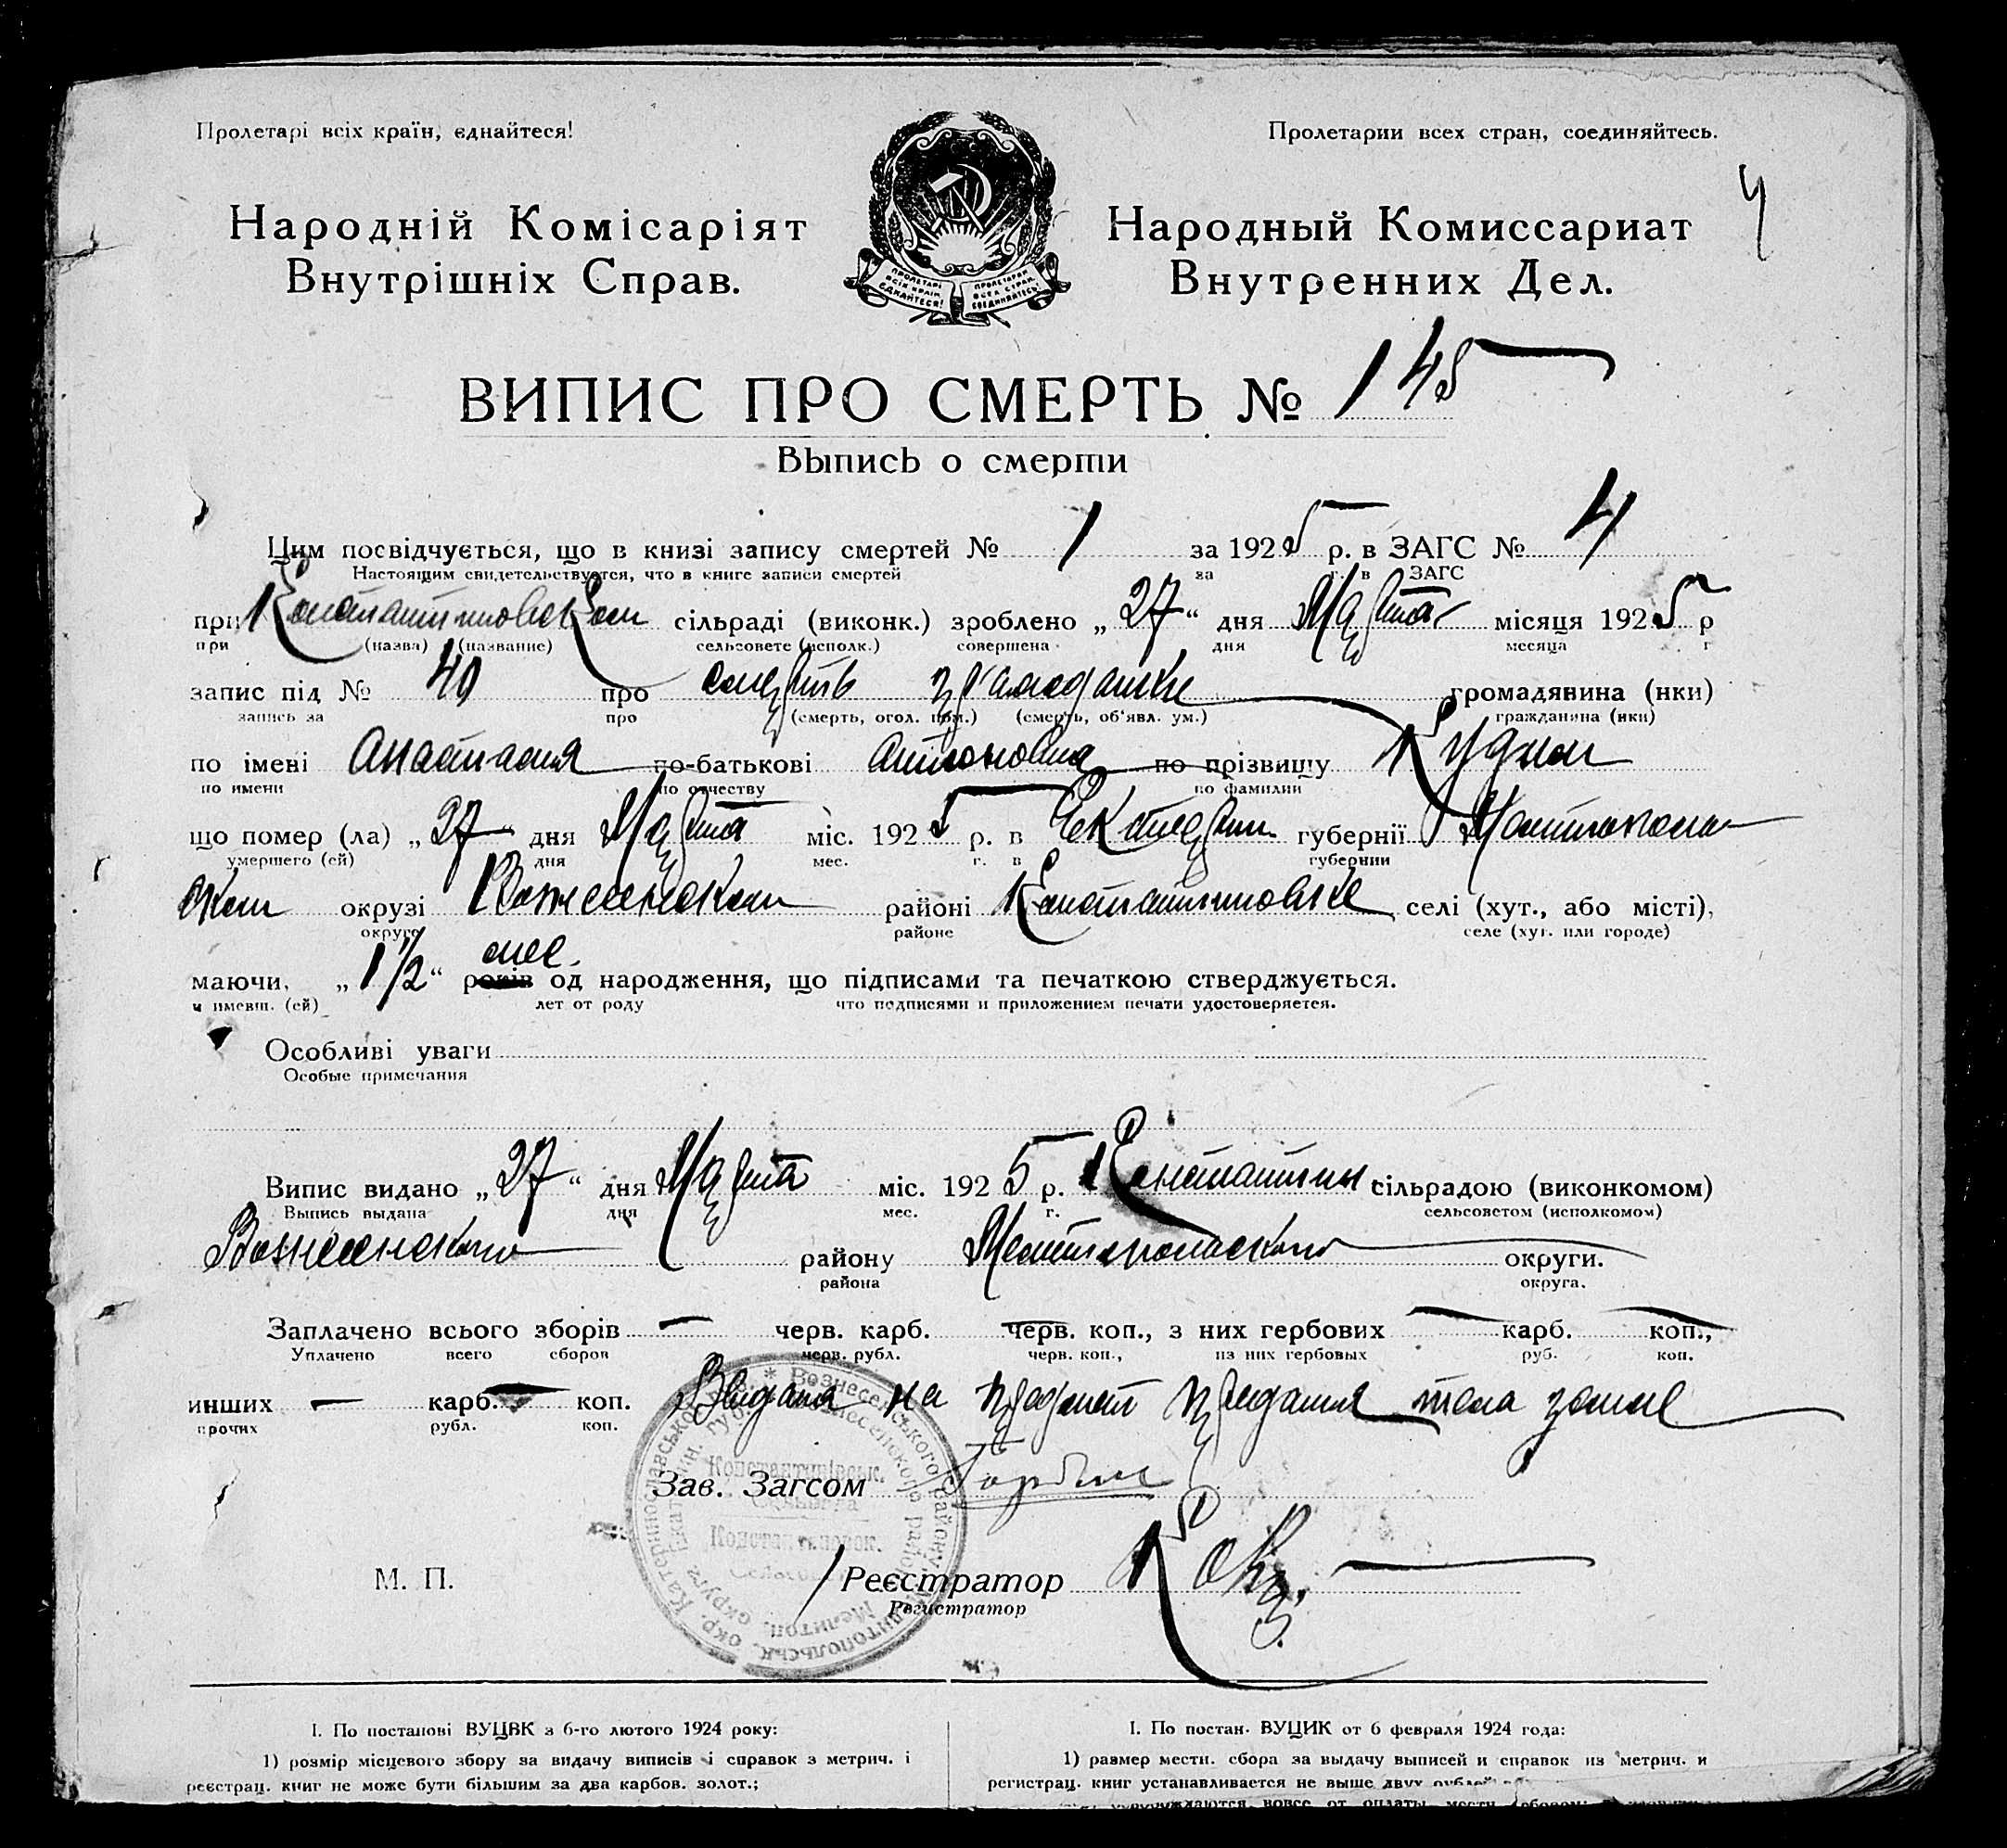 Пролетарі всіх країн, єднайтеся!
Пролетарии всех стран, соединяйтесь.
4
Народній Комісаріят
Внутрішніх Справ.
Народный Комиссариат
Внутренних Дел.
ПРОЛЕТАРІ ВСІХ КРАЇН ЄДНАЙТЕСЯ!
ПРОЛЕТАРИИ ВСЕХ СТРАН, СОЕДИНЯЙТЕСЬ
ВИПИС ПРО СМЕРТЬ № 145
Выпись о смерти
Цим посвідчується, що в книзі запису смертей № 1 за 1925 р. в ЗАГС № 4
Настоящим свидетельствуется, что в книге записи смертей за г. в ЗАГС
при Константиновском сільраді (виконк.) зроблено „27“ дня Марта місяця 1925 р
при (назва) (название) сельсовете (исполк.) совершена дня месяца г
запис під № 40 про смерть гр-анки громадянина (нки)
запись за про (смерть, огол. пом.) (смерть, об'явл. ум.) гражданина (нки)
по імені Анастасия по-батькові Антоновна по прізвищу
по имени по отчеству по фамилии
що помер (ла) „27“ дня Марта міс. 1925 р. в Екатерин губернії Мелитополь
умершего (ей) дня мес. г. в губернии
ском окрузі Вознесенском районі Константиновке селі (хут., або місті),
округе районе селе (хут. или городе)
мес.
маючи, „1 1/2“ років од народження, що підписами та печаткою стверджується.
и имевш. (ей) лет от роду что подписями и приложением печати удостоверяется.
Особливі уваги
Особые примечания
Випис видано „27“ дня Марта міс. 1925 р. Константин сільрадою (виконкомом)
Выпись выдана дня мес. г. сельсоветом (исполкомом)
Вознесенского району Мелитопольского округи.
района округа.
Заплачено всього зборів — черв. карб. черв. коп., з них гербових — карб. коп.,
Уплачено всего сборов черв. рубл. черв. коп., из них гербовых руб. коп.
инших — карб. — коп. Выдана на предмет предания тела земле
прочих рубл. коп.
Зав. Загсом
М. П.
Реєстратор
Регистратор
I. По постанові ВУЦВК з 6-го лютого 1924 року:
1) розмір місцевого збору за видачу виписів і справок з метрич. і
реєстрац. книг не може бути більшим за два карбов. золот.;
I. По постан. ВУЦИК от 6 февраля 1924 года:
1) размер местн. сбора за выдачу выписей и справок из метрич. и
регистрац. книг устанавливается не выше двух